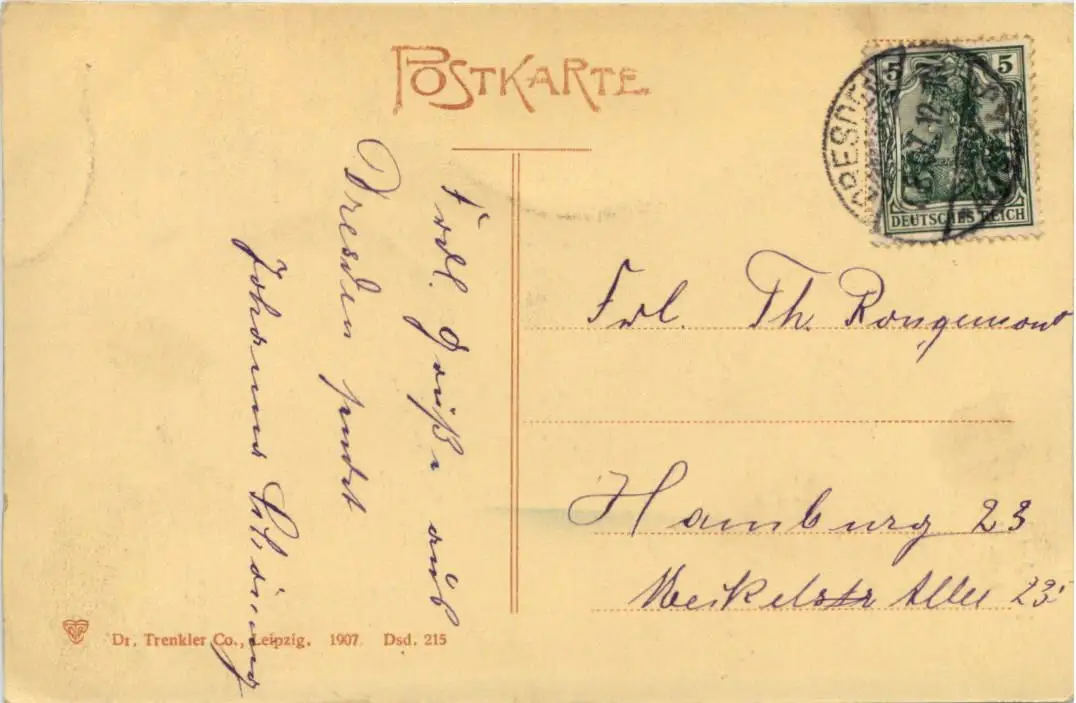 POSTKARTE
5 5
DRESDEN
DEUTSCHES REICH
Frdl. Grüße aus
Dresden sendet
Johannes
Frl. Th. Rongemont
Hamburg 23
Allee 23
Dr. Trenkler Co., Leipzig. 1907. Dsd. 215